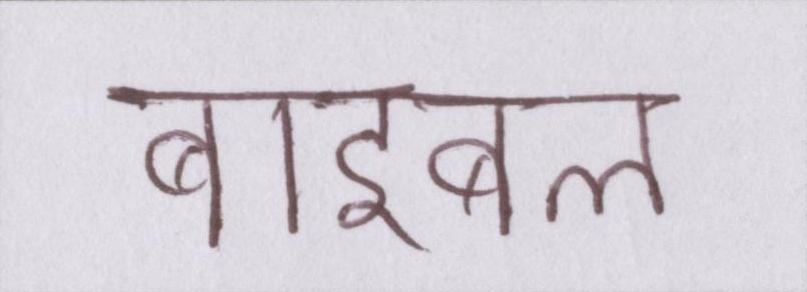 बाइबल